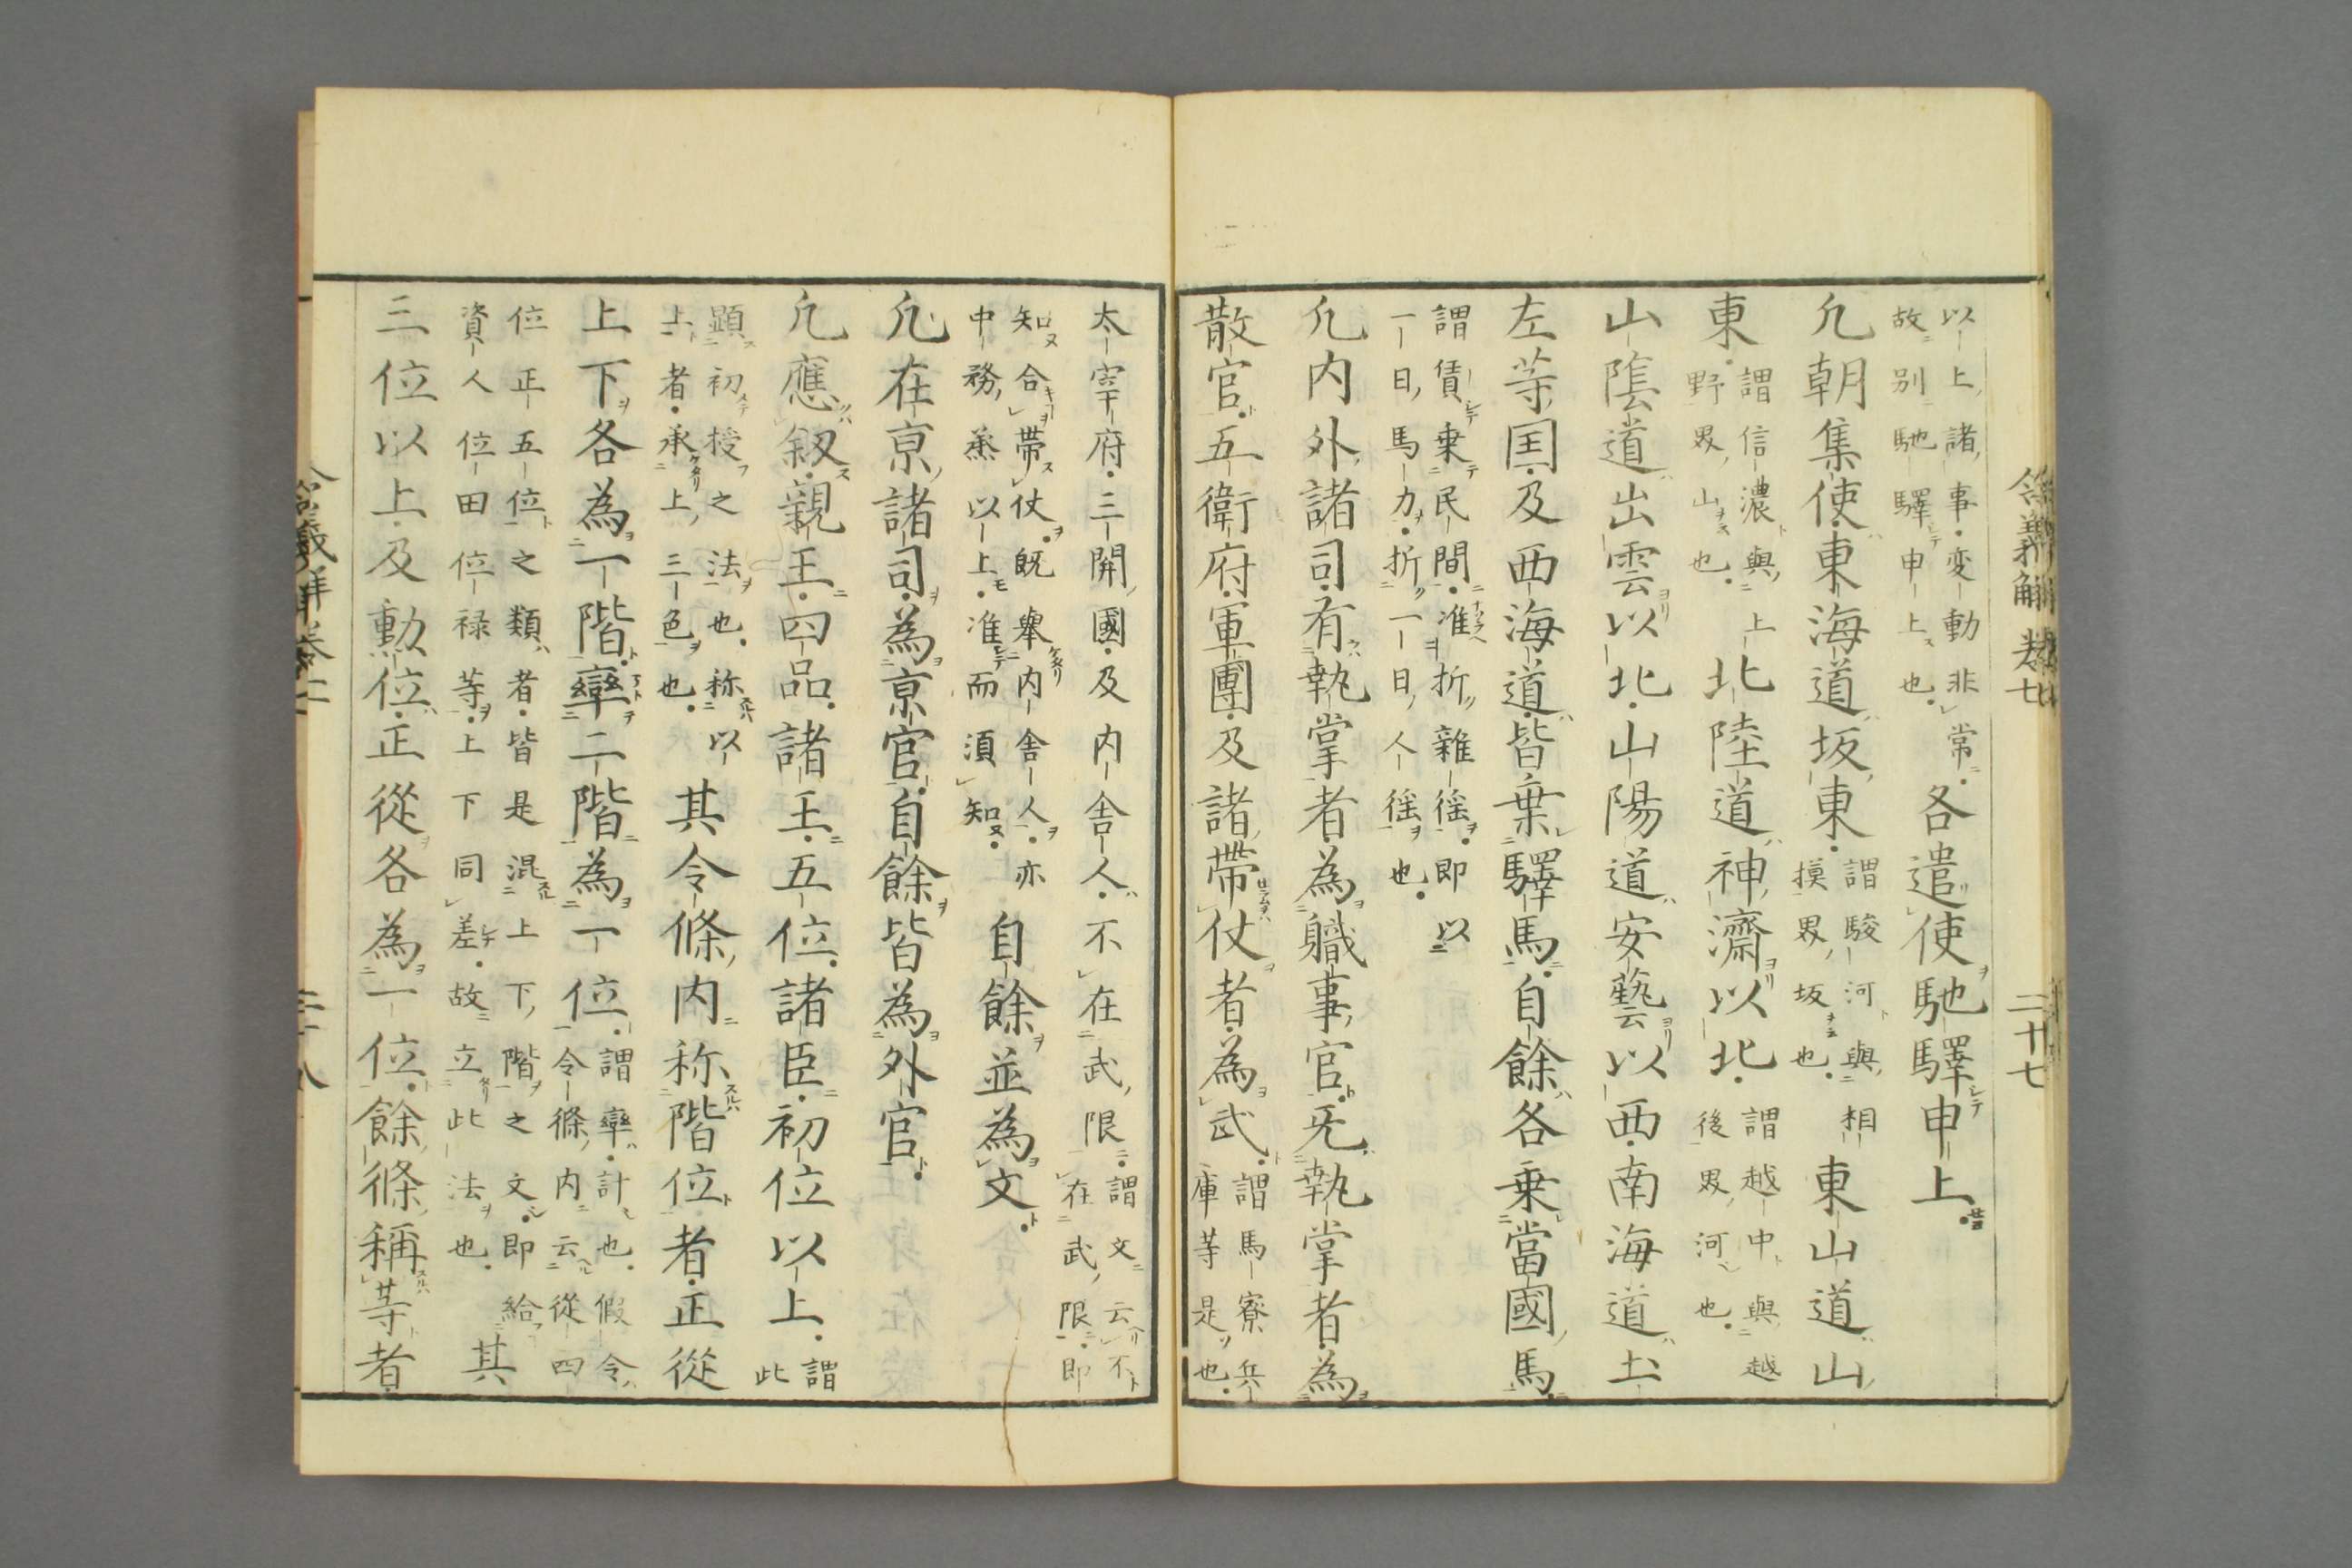 以上諸事変動非常
故別馳驛申上也
各遣使馳驛申上
凢朝集使東海道坂東
謂駿河與相
摸界坂也
東山道山
東
謂信濃與上
野界山也
北陸道神濟以北
謂越中與越
後界河也
山陰道出雲以北山陽道安藝以西南海道土
左等国及西海道皆乗驛馬自餘各乗當國馬
謂賃乗民間准折雜徭即以
一日馬力折一日人徭也
凢内外諸司有執掌者為軄事官旡執掌者為
散官五衛府軍團及諸帶仗者為武
謂馬寮兵
庫等是也
令義解卷七
二十七
太宰府三関國及内舎人不在武限
謂文云不
在武限即
知合帶仗既舉内舎人亦
中務烝以上准而須知
自餘並為文
凢在京諸司為京官自餘皆為外官
凢應叙親王四品諸王五位諸臣初位以上
謂
此
顕初授之法也称以
上者承上三色也
其令條内称階位者正從
上下各為一階率二階為一位
謂率計也假令
令條内云從四
位正五位之類者皆是混上下階之文即給
資人位田位禄等上下同差故立此法也
其
三位以上及勳位正從各為一位餘條稱等者